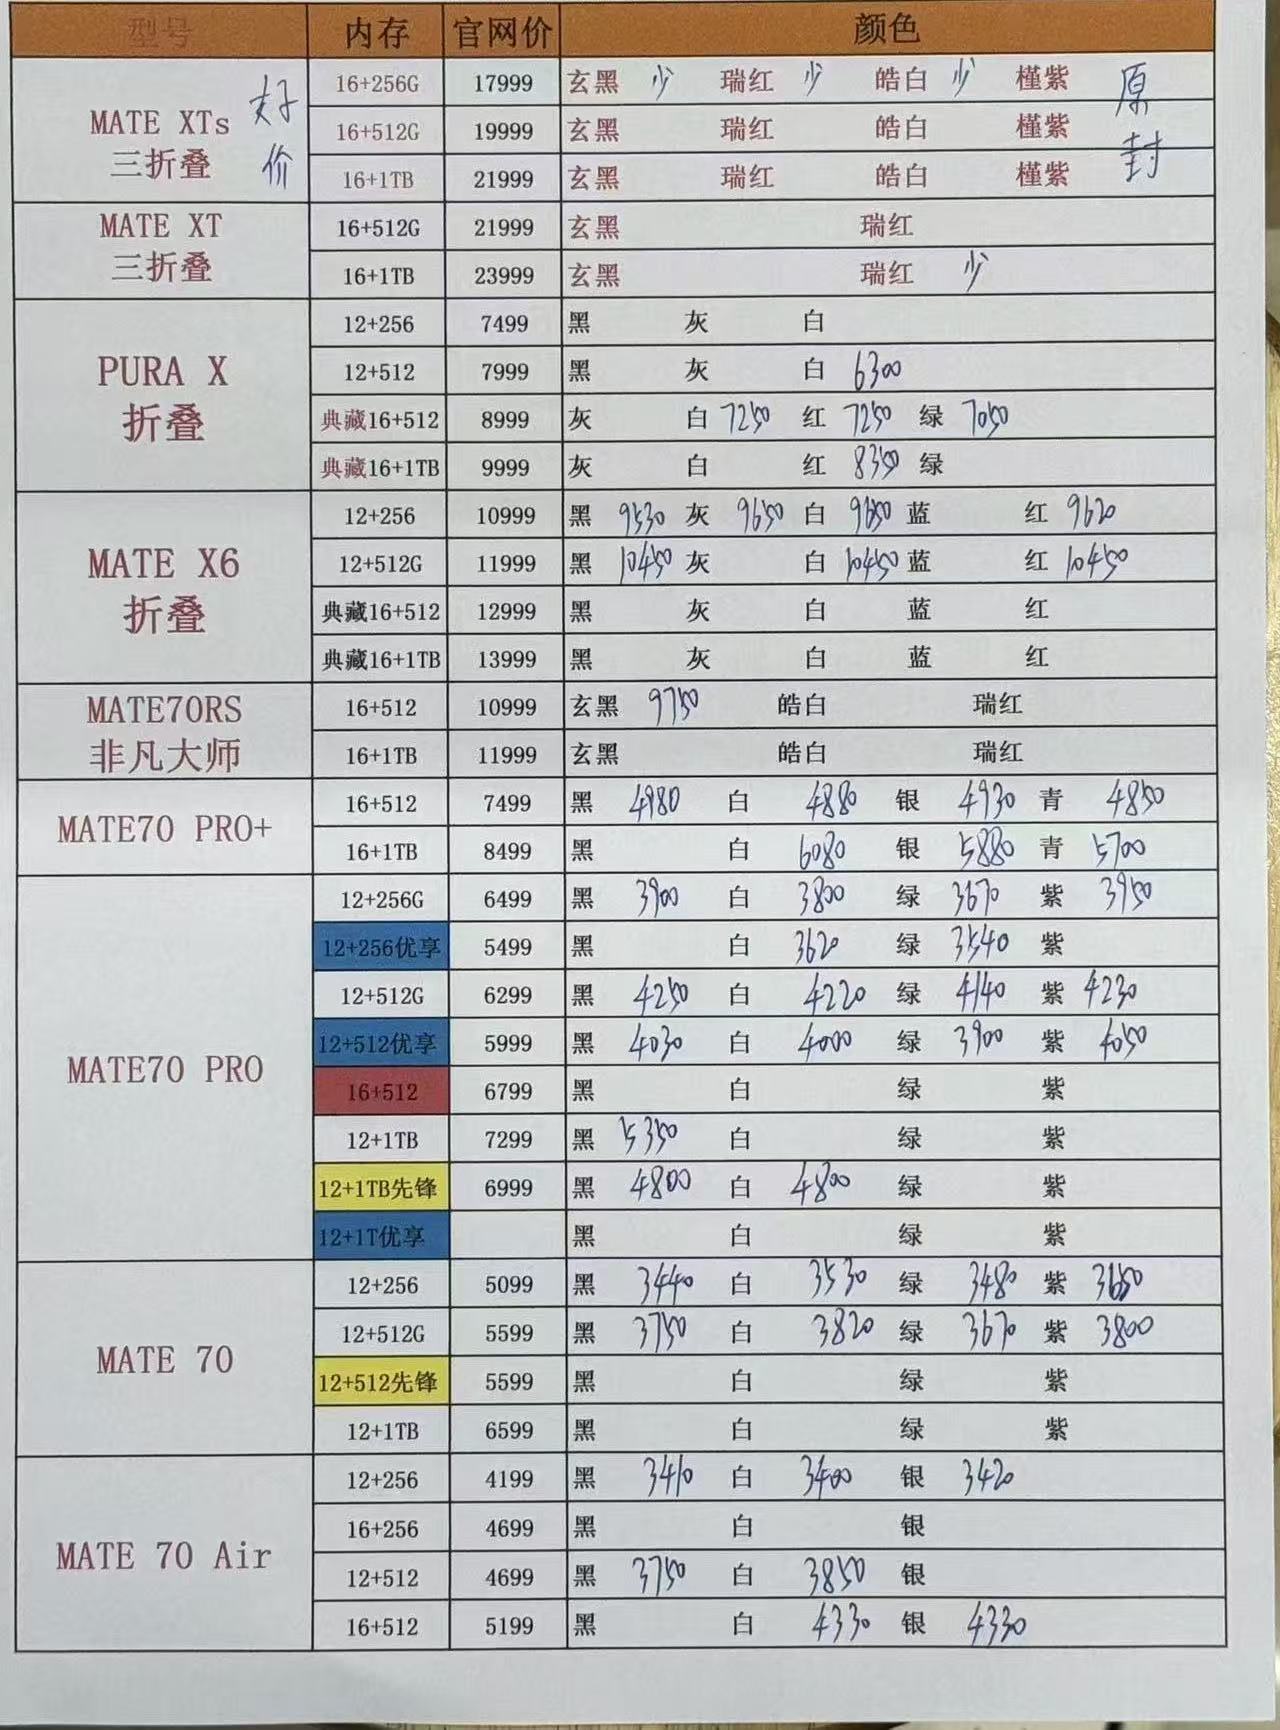 型号 内存 官网价 颜色
MATE XTs 三折叠 好价 16+256G 17999 玄黑 少 瑞红 少 皓白 少 槿紫 原封
16+512G 19999 玄黑 瑞红 皓白 槿紫
16+1TB 21999 玄黑 瑞红 皓白 槿紫
MATE XT 三折叠 16+512G 21999 玄黑 瑞红
16+1TB 23999 玄黑 瑞红 少
PURA X 折叠 12+256 7499 黑 灰 白
12+512 7999 黑 灰 白 6300
典藏16+512 8999 灰 白 7250 红 7250 绿 7050
典藏16+1TB 9999 灰 白 红 8350 绿
MATE X6 折叠 12+256 10999 黑 9530 灰 9650 白 9650 蓝 红 9620
12+512G 11999 黑 10450 灰 白 10450 蓝 红 10450
典藏16+512 12999 黑 灰 白 蓝 红
典藏16+1TB 13999 黑 灰 白 蓝 红
MATE70RS 非凡大师 16+512 10999 玄黑 9750 皓白 瑞红
16+1TB 11999 玄黑 皓白 瑞红
MATE70 PRO+ 16+512 7499 黑 4980 白 4880 银 4930 青 4850
16+1TB 8499 黑 白 6080 银 5880 青 5700
MATE70 PRO 12+256G 6499 黑 3900 白 3800 绿 3670 紫 3950
12+256优享 5499 黑 白 3620 绿 3540 紫
12+512G 6299 黑 4250 白 4220 绿 4140 紫 4230
12+512优享 5999 黑 4030 白 4000 绿 3900 紫 4050
16+512 6799 黑 白 绿 紫
12+1TB 7299 黑 5350 白 绿 紫
12+1TB先锋 6999 黑 4800 白 4800 绿 紫
12+1T优享 黑 白 绿 紫
MATE 70 12+256 5099 黑 3440 白 3530 绿 3480 紫 3650
12+512G 5599 黑 3750 白 3820 绿 3670 紫 3800
12+512先锋 5599 黑 白 绿 紫
12+1TB 6599 黑 白 绿 紫
MATE 70 Air 12+256 4199 黑 3410 白 3400 银 3420
16+256 4699 黑 白 银
12+512 4699 黑 3750 白 3850 银
16+512 5199 黑 白 4330 银 4330